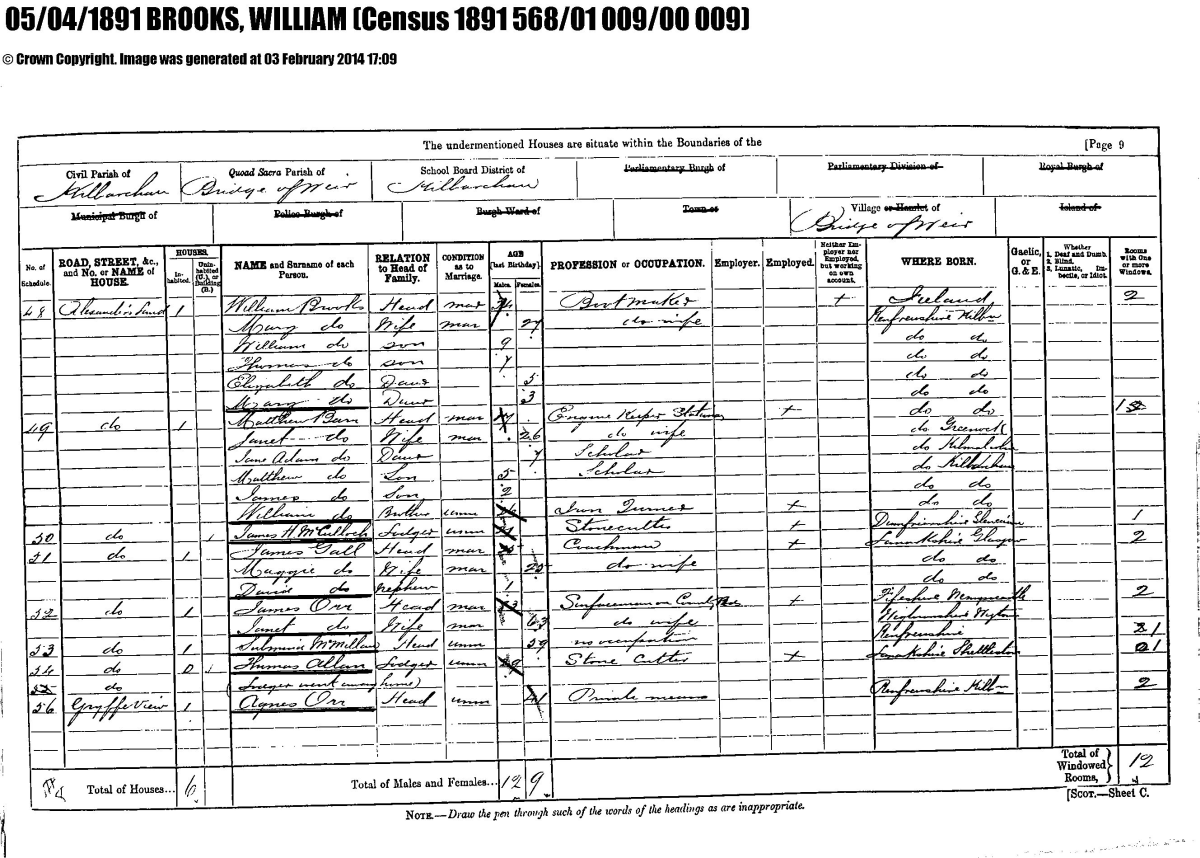 05/04/1891 BROOKS, WILLIAM (Census 1891 568/01 009/00 009)
© Crown Copyright. Image was generated at 03 February 2014 17:09
The undermentioned Houses are situate within the Boundaries of the [Page 9
Civil Parish of Quoad Sacra Parish of School Board District of Parliamentary Burgh of Parliamentary Division of Royal Burgh of
Kilbarchan Bridge of Weir Kilbarchan
Municipal Burgh of Police Burgh of Burgh Ward of Town of Village or Hamlet of Island of
Bridge of Weir
No. of Schedule. ROAD, STREET, &c., and No. or NAME of HOUSE. HOUSES. Inhabited. Uninhabited (U.), or Building (B.) NAME and Surname of each Person. RELATION to Head of Family. CONDITION as to Marriage. AGE [last Birthday]. Males. Females. PROFESSION or OCCUPATION. Employer. Employed. Neither Employer nor Employed, but working on own account. WHERE BORN. Gaelic, or G. & E. Whether 1. Deaf and Dumb. 2. Blind. 3. Lunatic, Imbecile, or Idiot. Rooms with One or more Windows.
48 1 William Brooks Head mar 34 Bootmaker + Ireland 2
Mary do Wife mar 27 do wife Renfrewshire
William do son 9 do do
Thomas do son 7 do do
Elizabeth do Daur 5 do do
Mary do Daur 3 do do
49 do 1 Matthew Head mar Engine Keeper + do do
Janet do Wife mar 26 do wife do Greenock
Jane Adam do Daur 7 Scholar do
Matthew do Son 5 Scholar do Kilbarchan
James do Son 2 do do
William do Brother unm Iron Turner + do do
50 do 1 James H McCulloch Lodger unm Stonecutter + Dumfriesshire 1
51 do 1 James Gall Head mar Coachman + Lanarkshire Glasgow 2
Maggie do Wife mar 25 do wife do do
David do Nephew 1 do do
52 do 1 James Orr Head mar Surfaceman on + Fifeshire 2
Janet do Wife mar 63 do wife
53 do 1 McMillan Head unm 59 no occupation Renfrewshire 1
54 do 0 1 Thomas Allan Lodger unm Stone Cutter + Lanarkshire Shettleston 1
55 do (Lodger went away home)
56 Gryffe View 1 Agnes Orr Head unm 41 Private means Renfrewshire 2
Total of Houses... 6 Total of Males and Females... 12 9 Total of Windowed Rooms, } 12
[SCOT.—Sheet C.
NOTE.—Draw the pen through such of the words of the headings as are inappropriate.